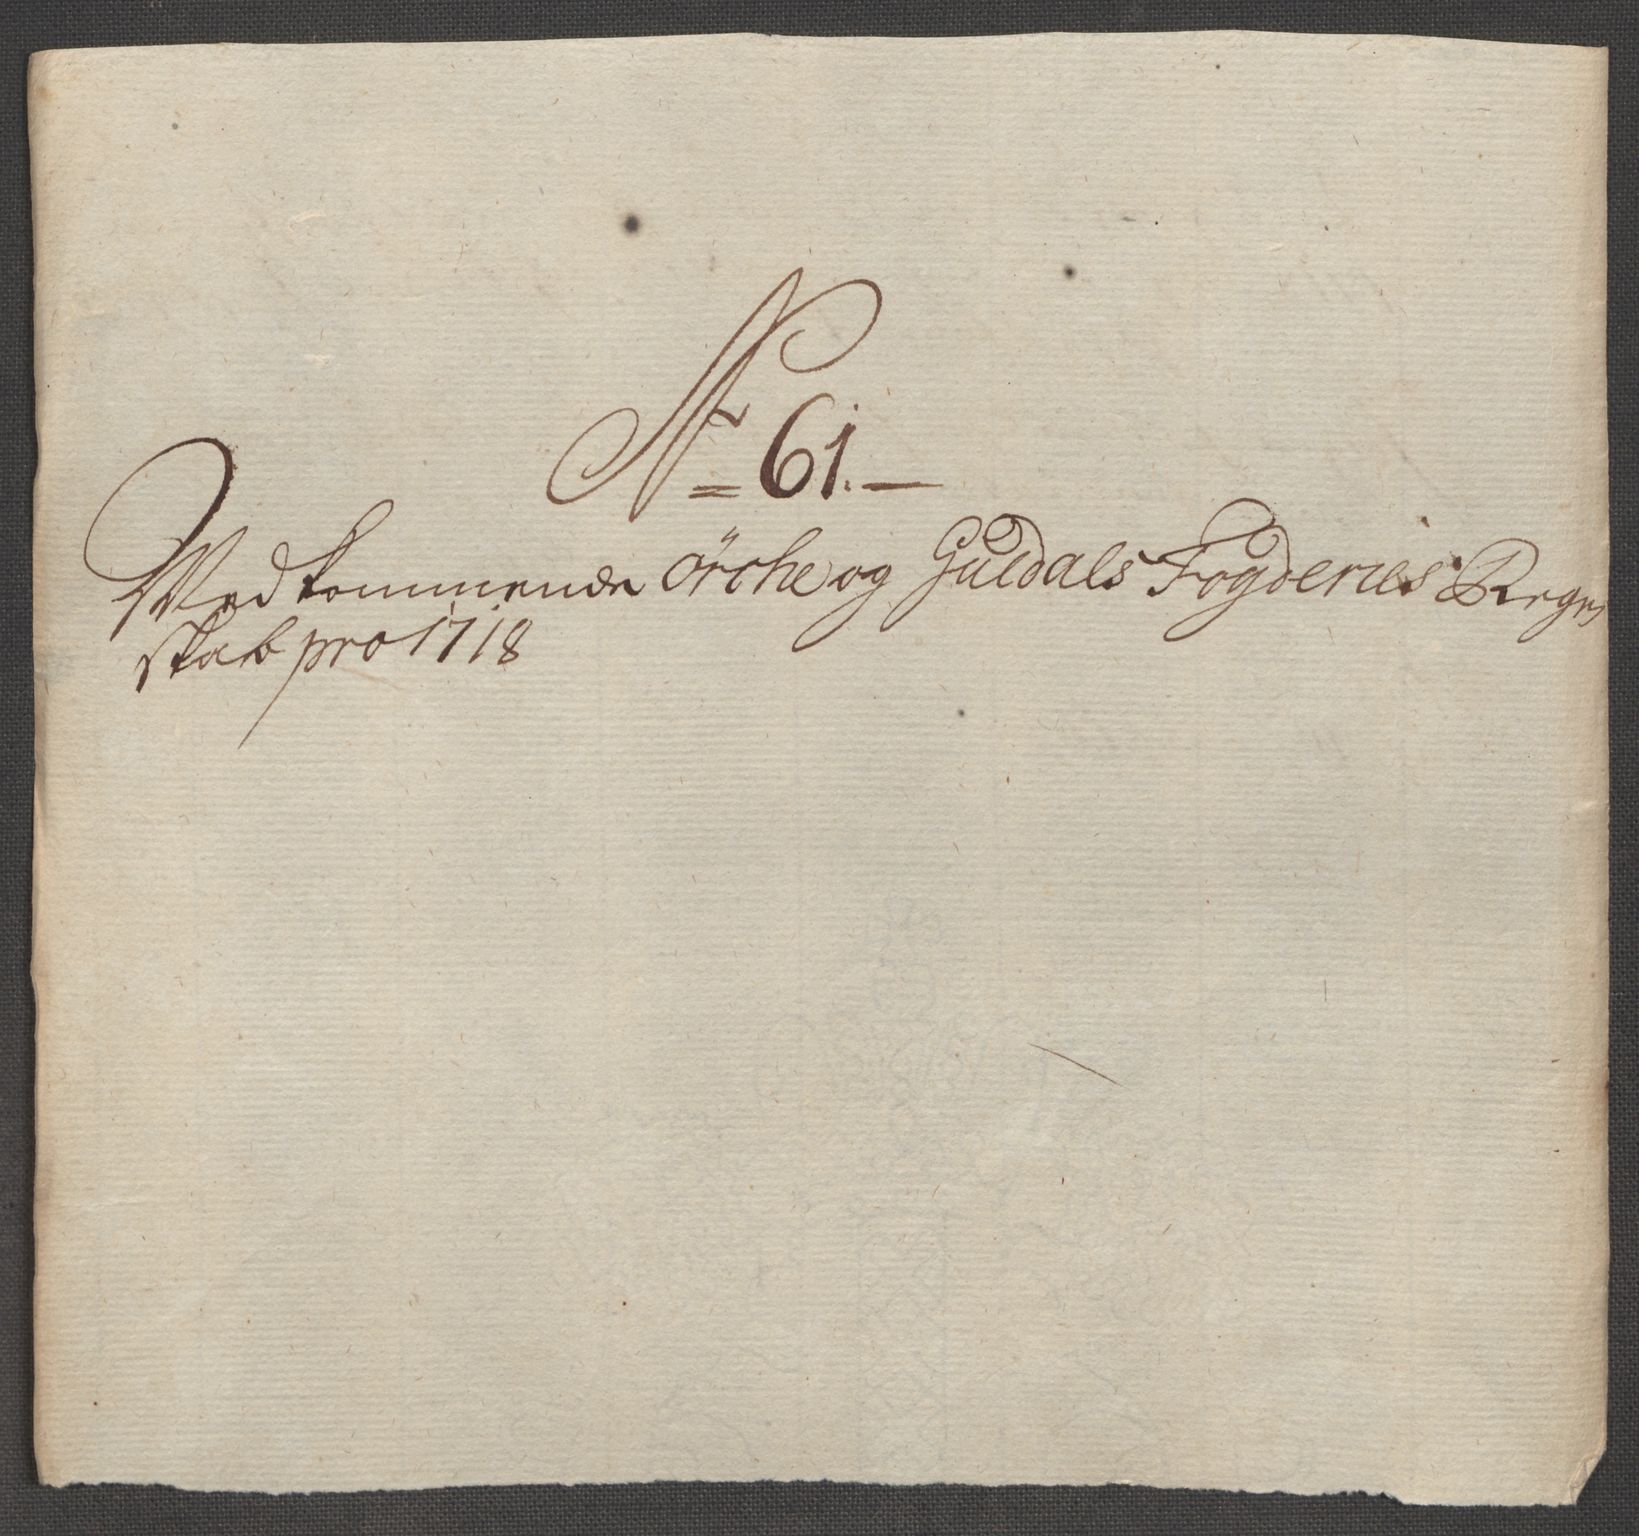 No 61.
Vedkommende Örche og Guldals Fogderies Regn
skab pro 1718